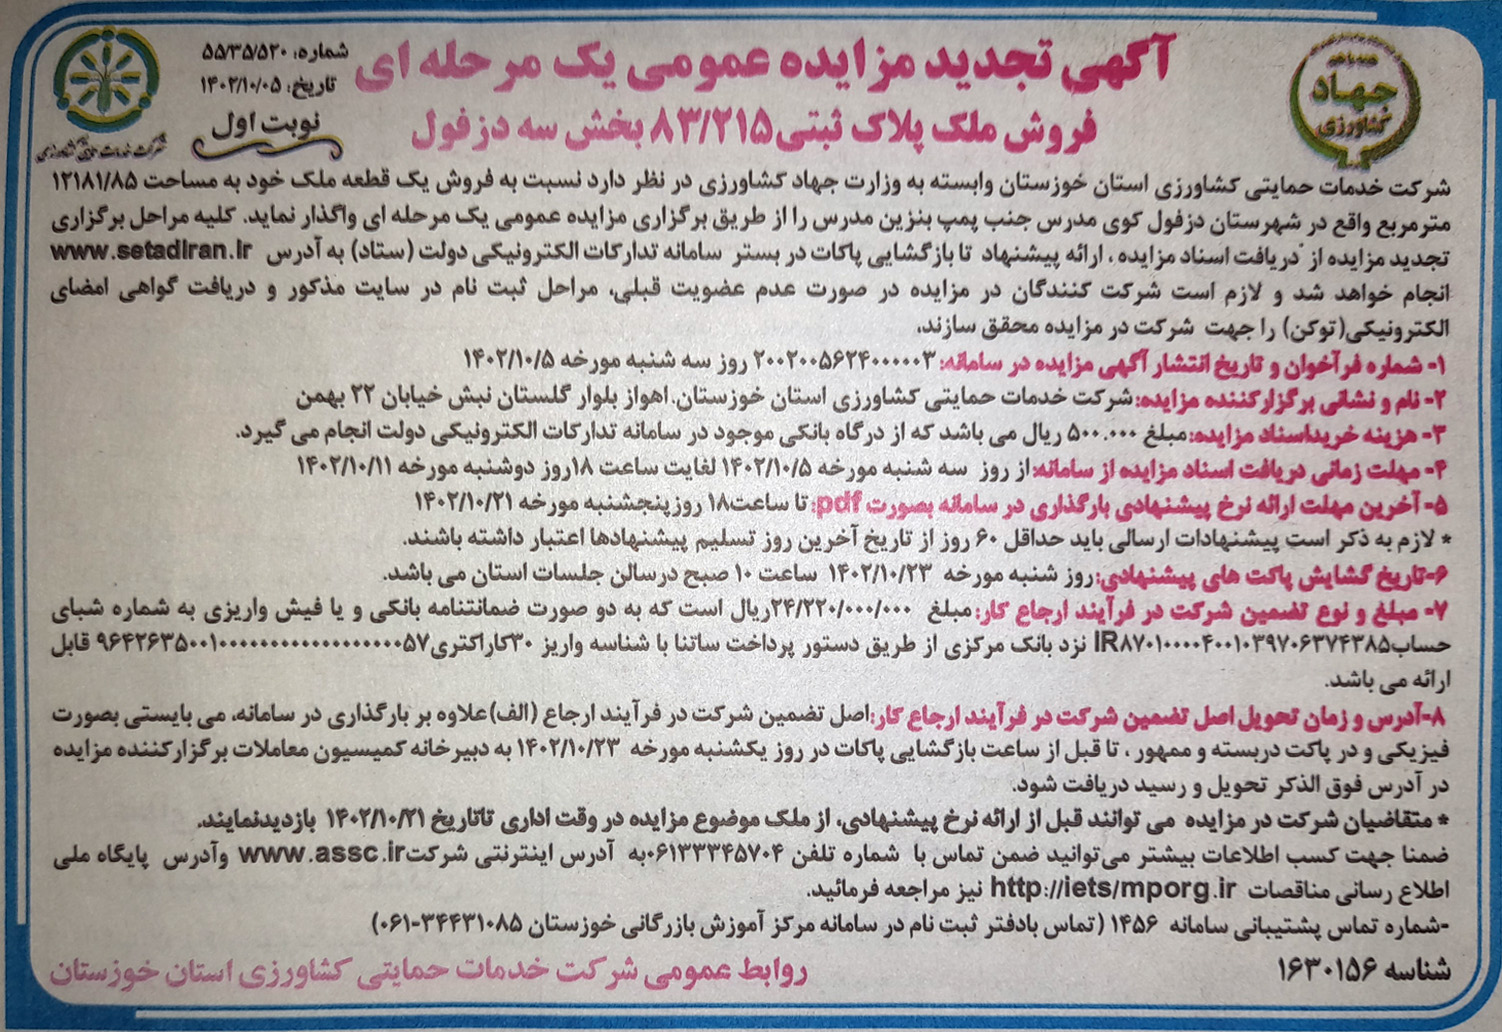 جهاد
کشاورزی
آگهی تجدید مزایده عمومی یک مرحله ای
فروش ملک پلاک ثبتی ۸۳/۲۱۵ بخش سه دزفول
شماره: ۵۵/۳۵/۵۲۰
تاریخ: ۱۴۰۲/۱۰/۰۵
نوبت اول
شرکت خدمات حمایتی کشاورزی
شرکت خدمات حمایتی کشاورزی استان خوزستان وابسته به وزارت جهاد کشاورزی در نظر دارد نسبت به فروش یک قطعه ملک خود به مساحت ۱۲۱۸۱/۸۵
مترمربع واقع در شهرستان دزفول کوی مدرس جنب پمپ بنزین مدرس را از طریق برگزاری مزایده عمومی یک مرحله ای واگذار نماید. کلیه مراحل برگزاری
تجدید مزایده از دریافت اسناد مزایده ، ارائه پیشنهاد تا بازگشایی پاکات در بستر سامانه تدارکات الکترونیکی دولت (ستاد) به آدرس www.setadiran.ir
انجام خواهد شد و لازم است شرکت کنندگان در مزایده در صورت عدم عضویت قبلی، مراحل ثبت نام در سایت مذکور و دریافت گواهی امضای
الکترونیکی(توکن) را جهت شرکت در مزایده محقق سازند.
۱- شماره فرآخوان و تاریخ انتشار آگهی مزایده در سامانه: ۲۰۰۲۰۰۵۶۲۴۰۰۰۰۰۳ روز سه شنبه مورخه ۱۴۰۲/۱۰/۵
۲- نام و نشانی برگزارکننده مزایده:شرکت خدمات حمایتی کشاورزی استان خوزستان. اهواز بلوار گلستان نبش خیابان ۲۲ بهمن
۳- هزینه خریداسناد مزایده:مبلغ ۵۰۰.۰۰۰ ریال می باشد که از درگاه بانکی موجود در سامانه تدارکات الکترونیکی دولت انجام می گیرد.
۴- مهلت زمانی دریافت اسناد مزایده از سامانه:از روز سه شنبه مورخه ۱۴۰۲/۱۰/۵ لغایت ساعت ۱۸روز دوشنبه مورخه ۱۴۰۲/۱۰/۱۱
۵- آخرین مهلت ارائه نرخ پیشنهادی بارگذاری در سامانه بصورت pdf: تا ساعت۱۸ روزپنجشنبه مورخه ۱۴۰۲/۱۰/۲۱
* لازم به ذکر است پیشنهادات ارسالی باید حداقل ۶۰ روز از تاریخ آخرین روز تسلیم پیشنهادها اعتبار داشته باشند.
۶-تاریخ گشایش پاکت های پیشنهادی:روز شنبه مورخه ۱۴۰۲/۱۰/۲۳ ساعت ۱۰ صبح درسالن جلسات استان می باشد.
۷- مبلغ و نوع تضمین شرکت در فرآیند ارجاع کار: مبلغ ۲۴/۲۲۰/۰۰۰/۰۰۰ریال است که به دو صورت ضمانتنامه بانکی و یا فیش واریزی به شماره شبای
حسابIR۸۷۰۱۰۰۰۰۴۰۰۱۰۳۹۷۰۶۳۷۴۳۸۵ نزد بانک مرکزی از طریق دستور پرداخت ساتنا با شناسه واریز ۳۰کاراکتری۹۶۴۲۶۳۵۰۰۱۰۰۰۰۰۰۰۰۰۰۰۰۰۰۰۰۰۰۵۷ قابل
ارائه می باشد.
۸-آدرس و زمان تحویل اصل تضمین شرکت در فرآیند ارجاع کار:اصل تضمین شرکت در فرآیند ارجاع (الف)علاوه بر بارگذاری در سامانه، می بایستی بصورت
فیزیکی و در پاکت دربسته و ممهور ، تا قبل از ساعت بازگشایی پاکات در روز یکشنبه مورخه ۱۴۰۲/۱۰/۲۳ به دبیرخانه کمیسیون معاملات برگزارکننده مزایده
در آدرس فوق الذکر تحویل و رسید دریافت شود.
* متقاضیان شرکت در مزایده می توانند قبل از ارائه نرخ پیشنهادی، از ملک موضوع مزایده در وقت اداری تاتاریخ ۱۴۰۲/۱۰/۲۱ بازدیدنمایند.
ضمنا جهت کسب اطلاعات بیشتر می‌توانید ضمن تماس با شماره تلفن ۰۶۱۳۳۳۴۵۷۰۴به آدرس اینترنتی شرکتwww.assc.ir وآدرس پایگاه ملی
اطلاع رسانی مناقصات http://iets/mporg.ir نیز مراجعه فرمائید.
-شماره تماس پشتیبانی سامانه ۱۴۵۶ (تماس بادفتر ثبت نام در سامانه مرکز آموزش بازرگانی خوزستان ۳۴۴۳۱۰۸۵-۰۶۱)
شناسه ۱۶۳۰۱۵۶
روابط عمومی شرکت خدمات حمایتی کشاورزی استان خوزستان